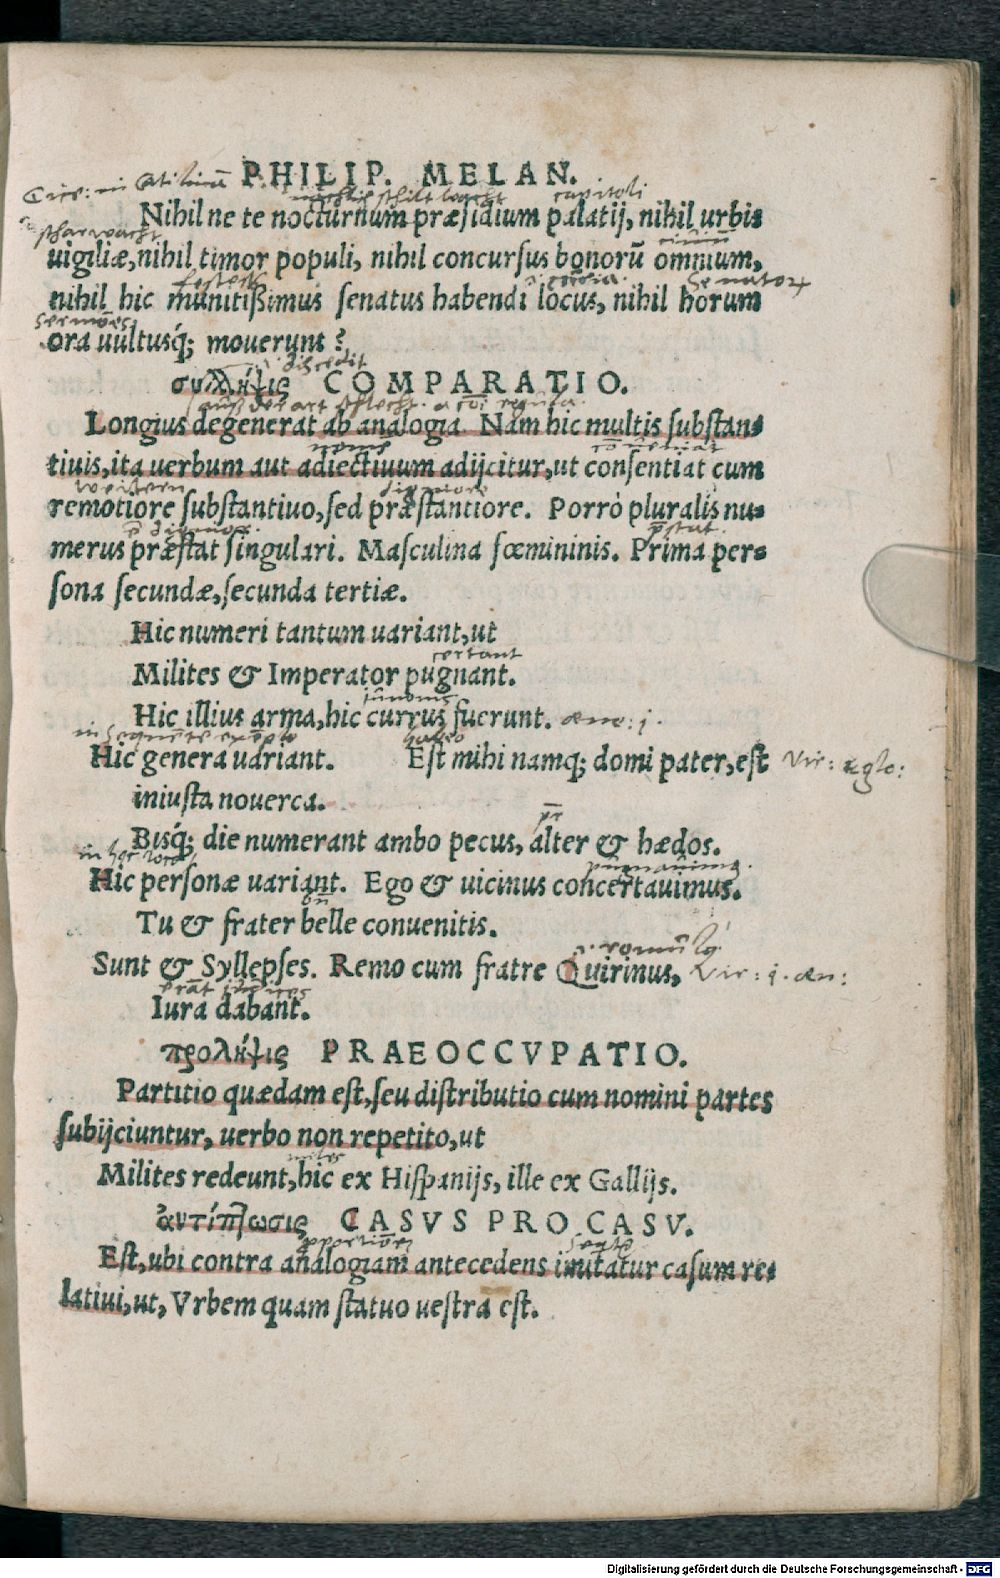 PHILIP. MELAN.
Nihil ne te nocturnum præsidium palatij, nihil urbis
uigiliæ, nihil timor populi, nihil concursus bonorũ omnium,
nihil hic munitissimus senatus habendi locus, nihil horum
ora uultusq́; mouerunt?
συλλήψις COMPARATIO.
Longius degenerat ab analogia. Nam hic multis substan-
tiuis, ita uerbum aut adiectiuum adijcitur, ut consentiat cum
remotiore substantiuo, sed præstantiore. Porrò pluralis nu-
merus præstat singulari. Masculina fœmininis. Prima per-
sona secundæ, secunda tertiæ.
Hic numeri tantum uariant, ut
certant
Milites & Imperator pugnant.
Hic illius arma, hic currus fuerunt. æne: j.
Hic genera uariant. Est mihi namq; domi pater, est Vir: æglo:
iniusta nouerca.
Bisq́; die numerant ambo pecus, alter & hædos.
Hic personæ uariant. Ego & uicinus concertauimus.
Tu & frater belle conuenitis.
Sunt & Syllepses. Remo cum fratre Quirinus, Vir: j. æn:
Iura dabant.
προλήψις PRAEOCCVPATIO.
Partitio quædam est, seu distributio cum nomini partes
subijciuntur, uerbo non repetito, ut
miles
Milites redeunt, hic ex Hispanijs, ille ex Gallijs.
ἀντίπτωσις CASVS PRO CASV.
Est, ubi contra analogiam antecedens imitatur casum re-
latiui, ut, Vrbem quam statuo uestra est.
Digitalisierung gefördert durch die Deutsche Forschungsgemeinschaft - DFG